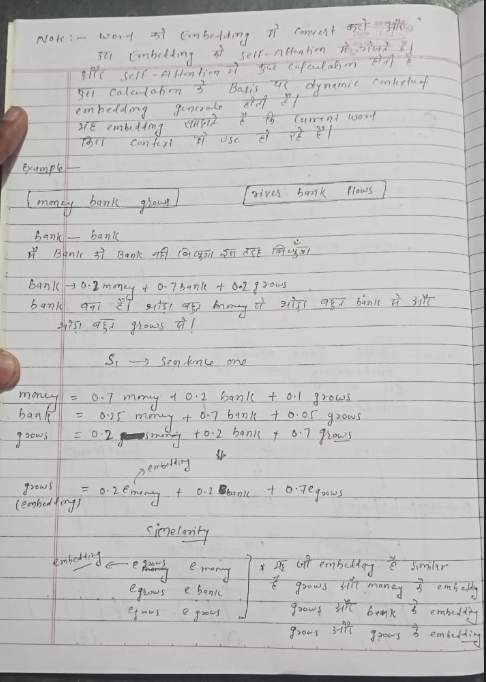 Note:- word को Embedding में convert करते और
उस Embedding को self-Attention में भेजते हैं।
और self-Attention में कुछ calculation होती है
इस calculation के Basis पर dynamic contextual
embedding generate होती है।
यह embedding समझाते हैं कि current word
किस context में use हो रहे हैं।
Example:-
money bank grows
river bank flows
bank — bank
मैं Bank को Bank नहीं लिखूंगा इस तरह लिखूंगा
bank → 0.2 money + 0.7 bank + 0.2 grows
bank बना है। थोड़ा बहुत money से थोड़ा बहुत bank से और
थोड़ा बहुत grows से।
S₁ → sentence one
money = 0.7 money + 0.2 bank + 0.1 grows
bank = 0.25 money + 0.7 bank + 0.05 grows
grows = 0.2 money + 0.2 bank + 0.7 grows
⇓
embedding
grows = 0.2 e money + 0.2 e bank + 0.7 e grows
(embedding)
Similarity
embedding ← e grows e money
e grows e bank
e grows e grows
* यह जो embedding है similar
है grows और money के embedding
grows और bank के embedding
grows और grows के embedding